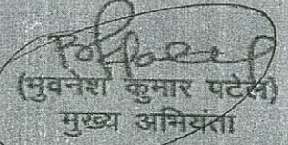 (भुवनेश कुमार पटेल)
मुख्य अभियंता